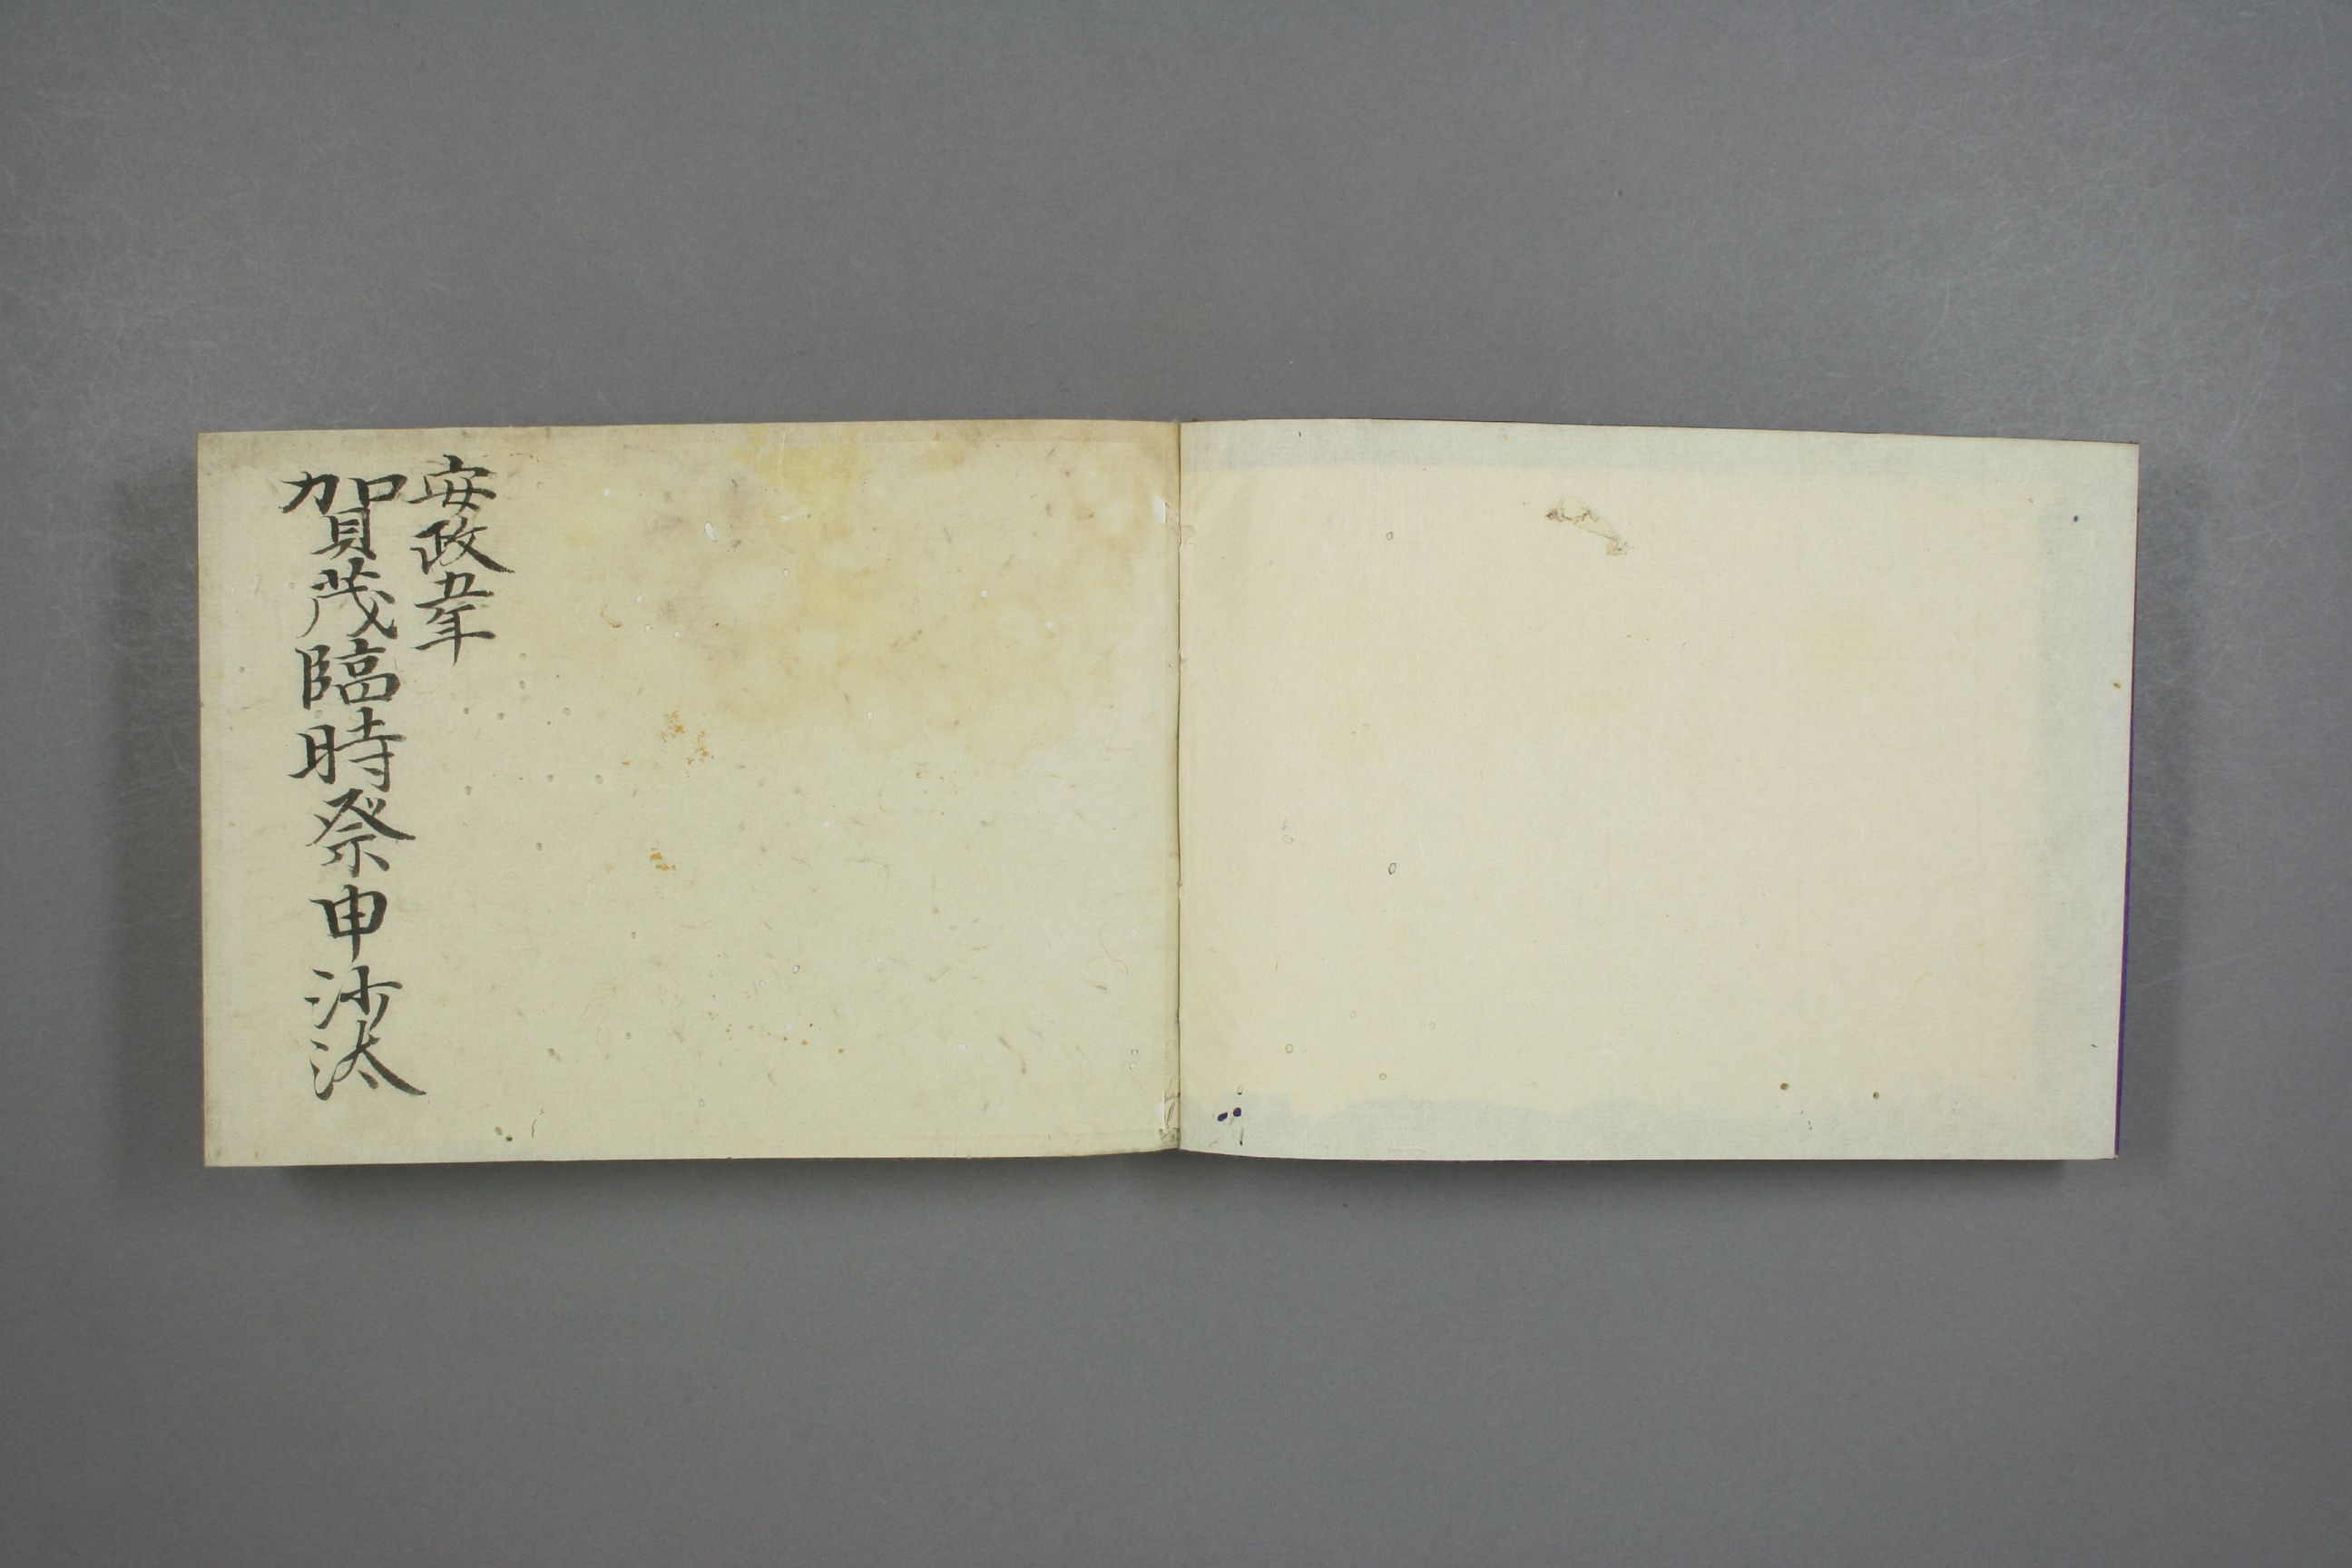 安政五年
賀茂臨時祭申沙汰